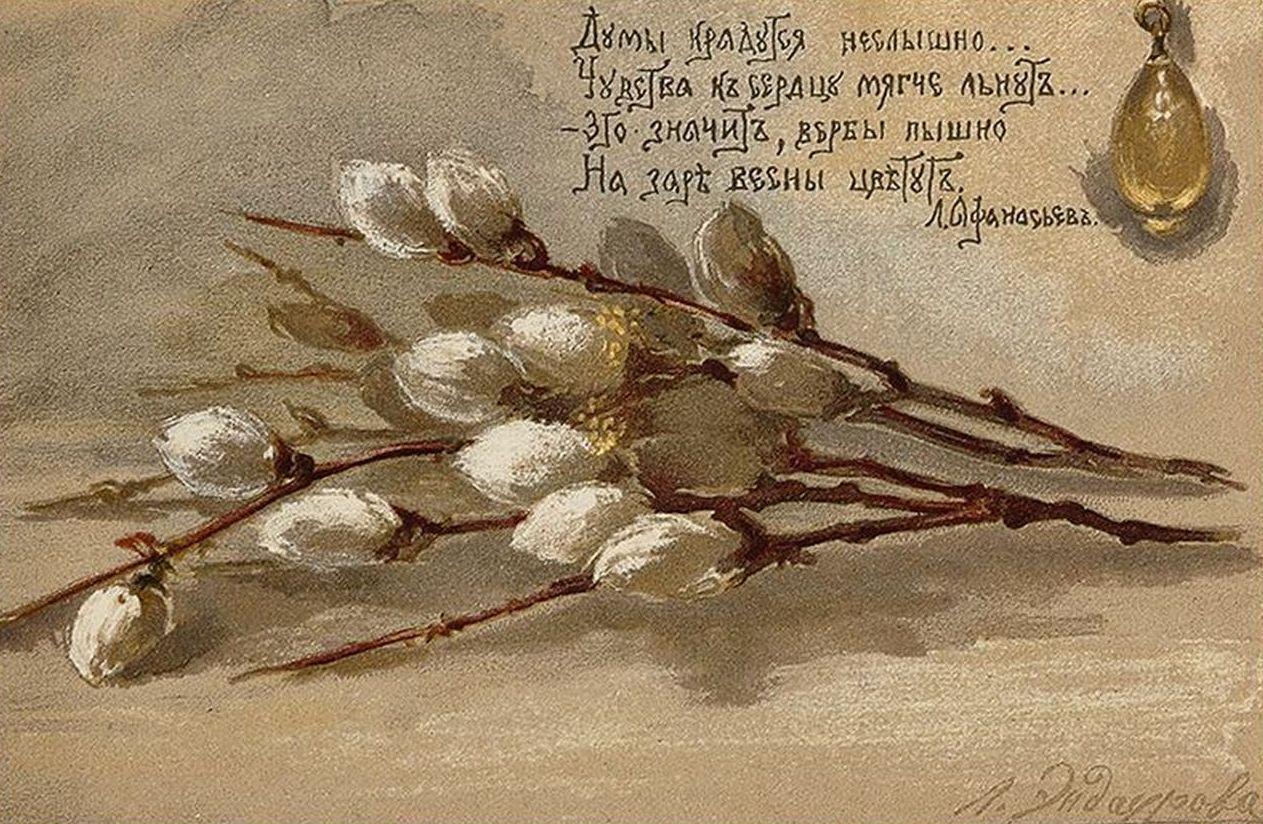 Думы крадутся неслышно...
Чувства къ сердцу мягче льнутъ...
- Это значитъ, вербы пышно
На зарѣ весны цвѣтутъ.
Л. Афанасьевъ.